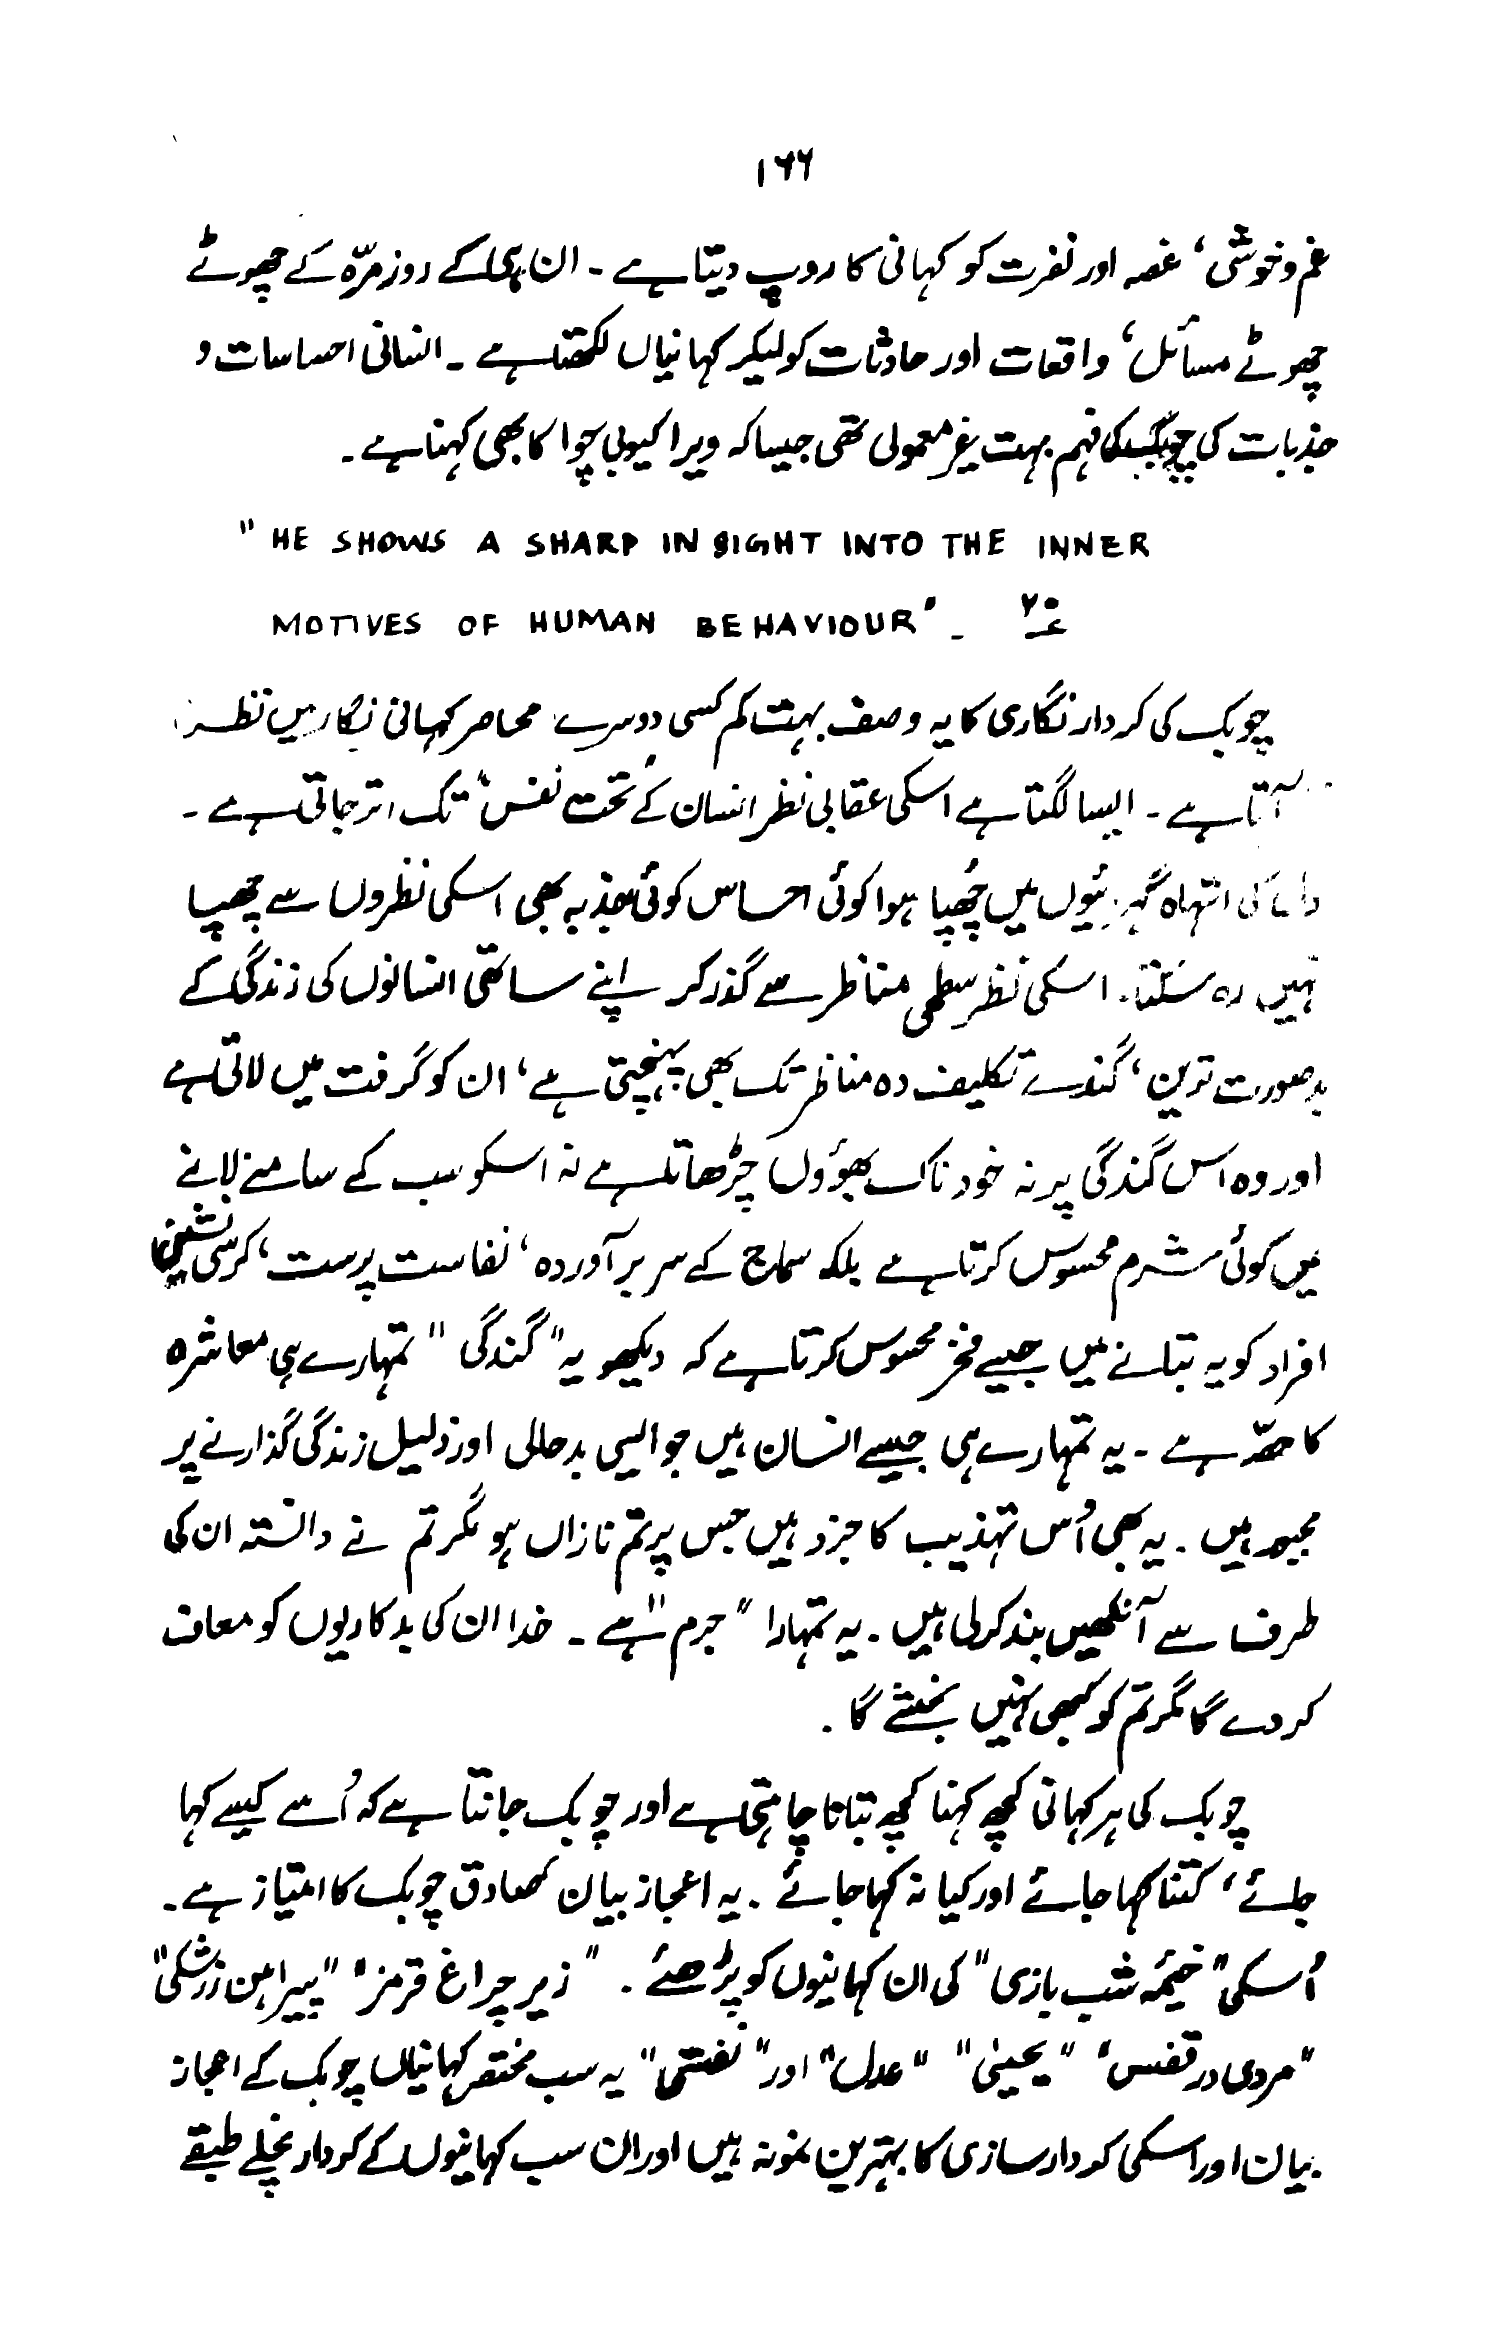 ۱۶۶
غم و خوشی، غصہ اور نفرت کو کہانی کا روپ دیتا ہے ۔ ان ہی کے روز مرّہ کے چھوٹے
چھوٹے مسائل، واقعات اور حادثات کو لیکر کہانیاں لکھتا ہے ۔ انسانی احساسات و
جذبات کی چوبک کی فہم بہت غیر معمولی تھی جیسا کہ ویرا کیوبی چوا کا بھی کہنا ہے ۔
" HE SHOWS A SHARP INSIGHT INTO THE INNER
MOTIVES OF HUMAN BEHAVIOUR" ـ ۲۰؏
چوبک کی کردار نگاری کا یہ وصف بہت کم کسی دوسرے معاصر کہانی نگار میں نظر
آتا ہے ۔ ایسا لگتا ہے اسکی عقابی نظر انسان کے ُتحت نفس، تک اتر جاتی ہے ۔
کی انتہاہ گہرئیوں میں چُھپا ہوا کوئی احساس کوئی جذبہ بھی اسکی نظروں سے چھپا
نہیں رہ سکتا۔ اسکی نظر سطحی مناظر سے گذر کر اپنے ساتھی انسانوں کی زندگی کے
بدصورت ترین، گندے تکلیف دہ مناظر تک بھی پہنچتی ہے، ان کو گرفت میں لاتی ہے
اور وہ اس گندگی پر نہ خود ناک بھوؤں چڑھاتا ہے نہ اسکو سب کے سامنے لانے
میں کوئی شرم محسوس کرتا ہے بلکہ سماج کے سر برآوردہ، نفاست پرست، کرسی نشین
افراد کو یہ بتانے میں جیسے فخر محسوس کرتا ہے کہ دیکھو یہ "گندگی" تمہارے ہی معاشرہ
کا حصّہ ہے ۔ یہ تمہارے ہی جیسے انسان ہیں جو ایسی بدحالی اور ذلیل زندگی گذارنے پر
مجبور ہیں ۔ یہ بھی اُس تہذیب کا جزو ہیں جس پر تم نازاں ہو مگر تم نے دانستہ ان کی
طرف سے آنکھیں بند کرلی ہیں ۔ یہ تمہارا "جرم" ہے ۔ خدا ان کی بدکاریوں کو معاف
کر دے گا مگر تم کو کبھی نہیں بخشے گا ۔
چوبک کی ہر کہانی کچھ کہنا کچھ بتانا چاہتی ہے اور چوبک جانتا ہے کہ اُسے کیسے کہا
جائے، کتنا کہا جائے اور کیا نہ کہا جائے ۔ یہ اعجاز بیان صادق چوبک کا امتیاز ہے ۔
اُسکی "خیمہ شب بازی" کی ان کہانیوں کو پڑھئے ۔ "زیر چراغ قرمز" "پیراہن زرشکی"
"مردی در قفس" "یحییٰ" "عدل" اور "نفتی" یہ سب مختصر کہانیاں چوبک کے اعجاز
بیان اور اسکی کردار سازی کا بہترین نمونہ ہیں اور ان سب کہانیوں کے کردار نچلے طبقے